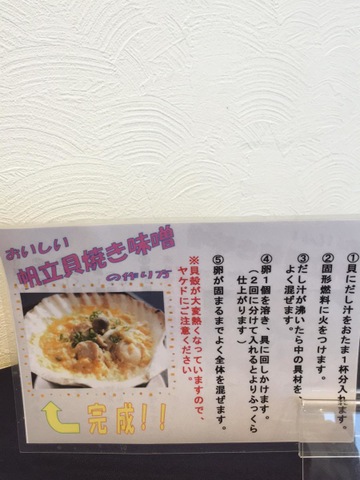 おいしい
帆立貝焼き味噌
の作り方
①貝にだし汁をおたま1杯分入れます。
②固形燃料に火をつけます。
③だし汁が沸いたら中の具材を、
よく混ぜます。
④卵1個を溶き、具に回しかけます。
(2回に分けて入れるとよりふっくら
仕上がります)
⑤卵が固まるまでよく全体を混ぜます。
※貝殻が大変熱くなっていますので、
ヤケドにご注意ください。
完成!!